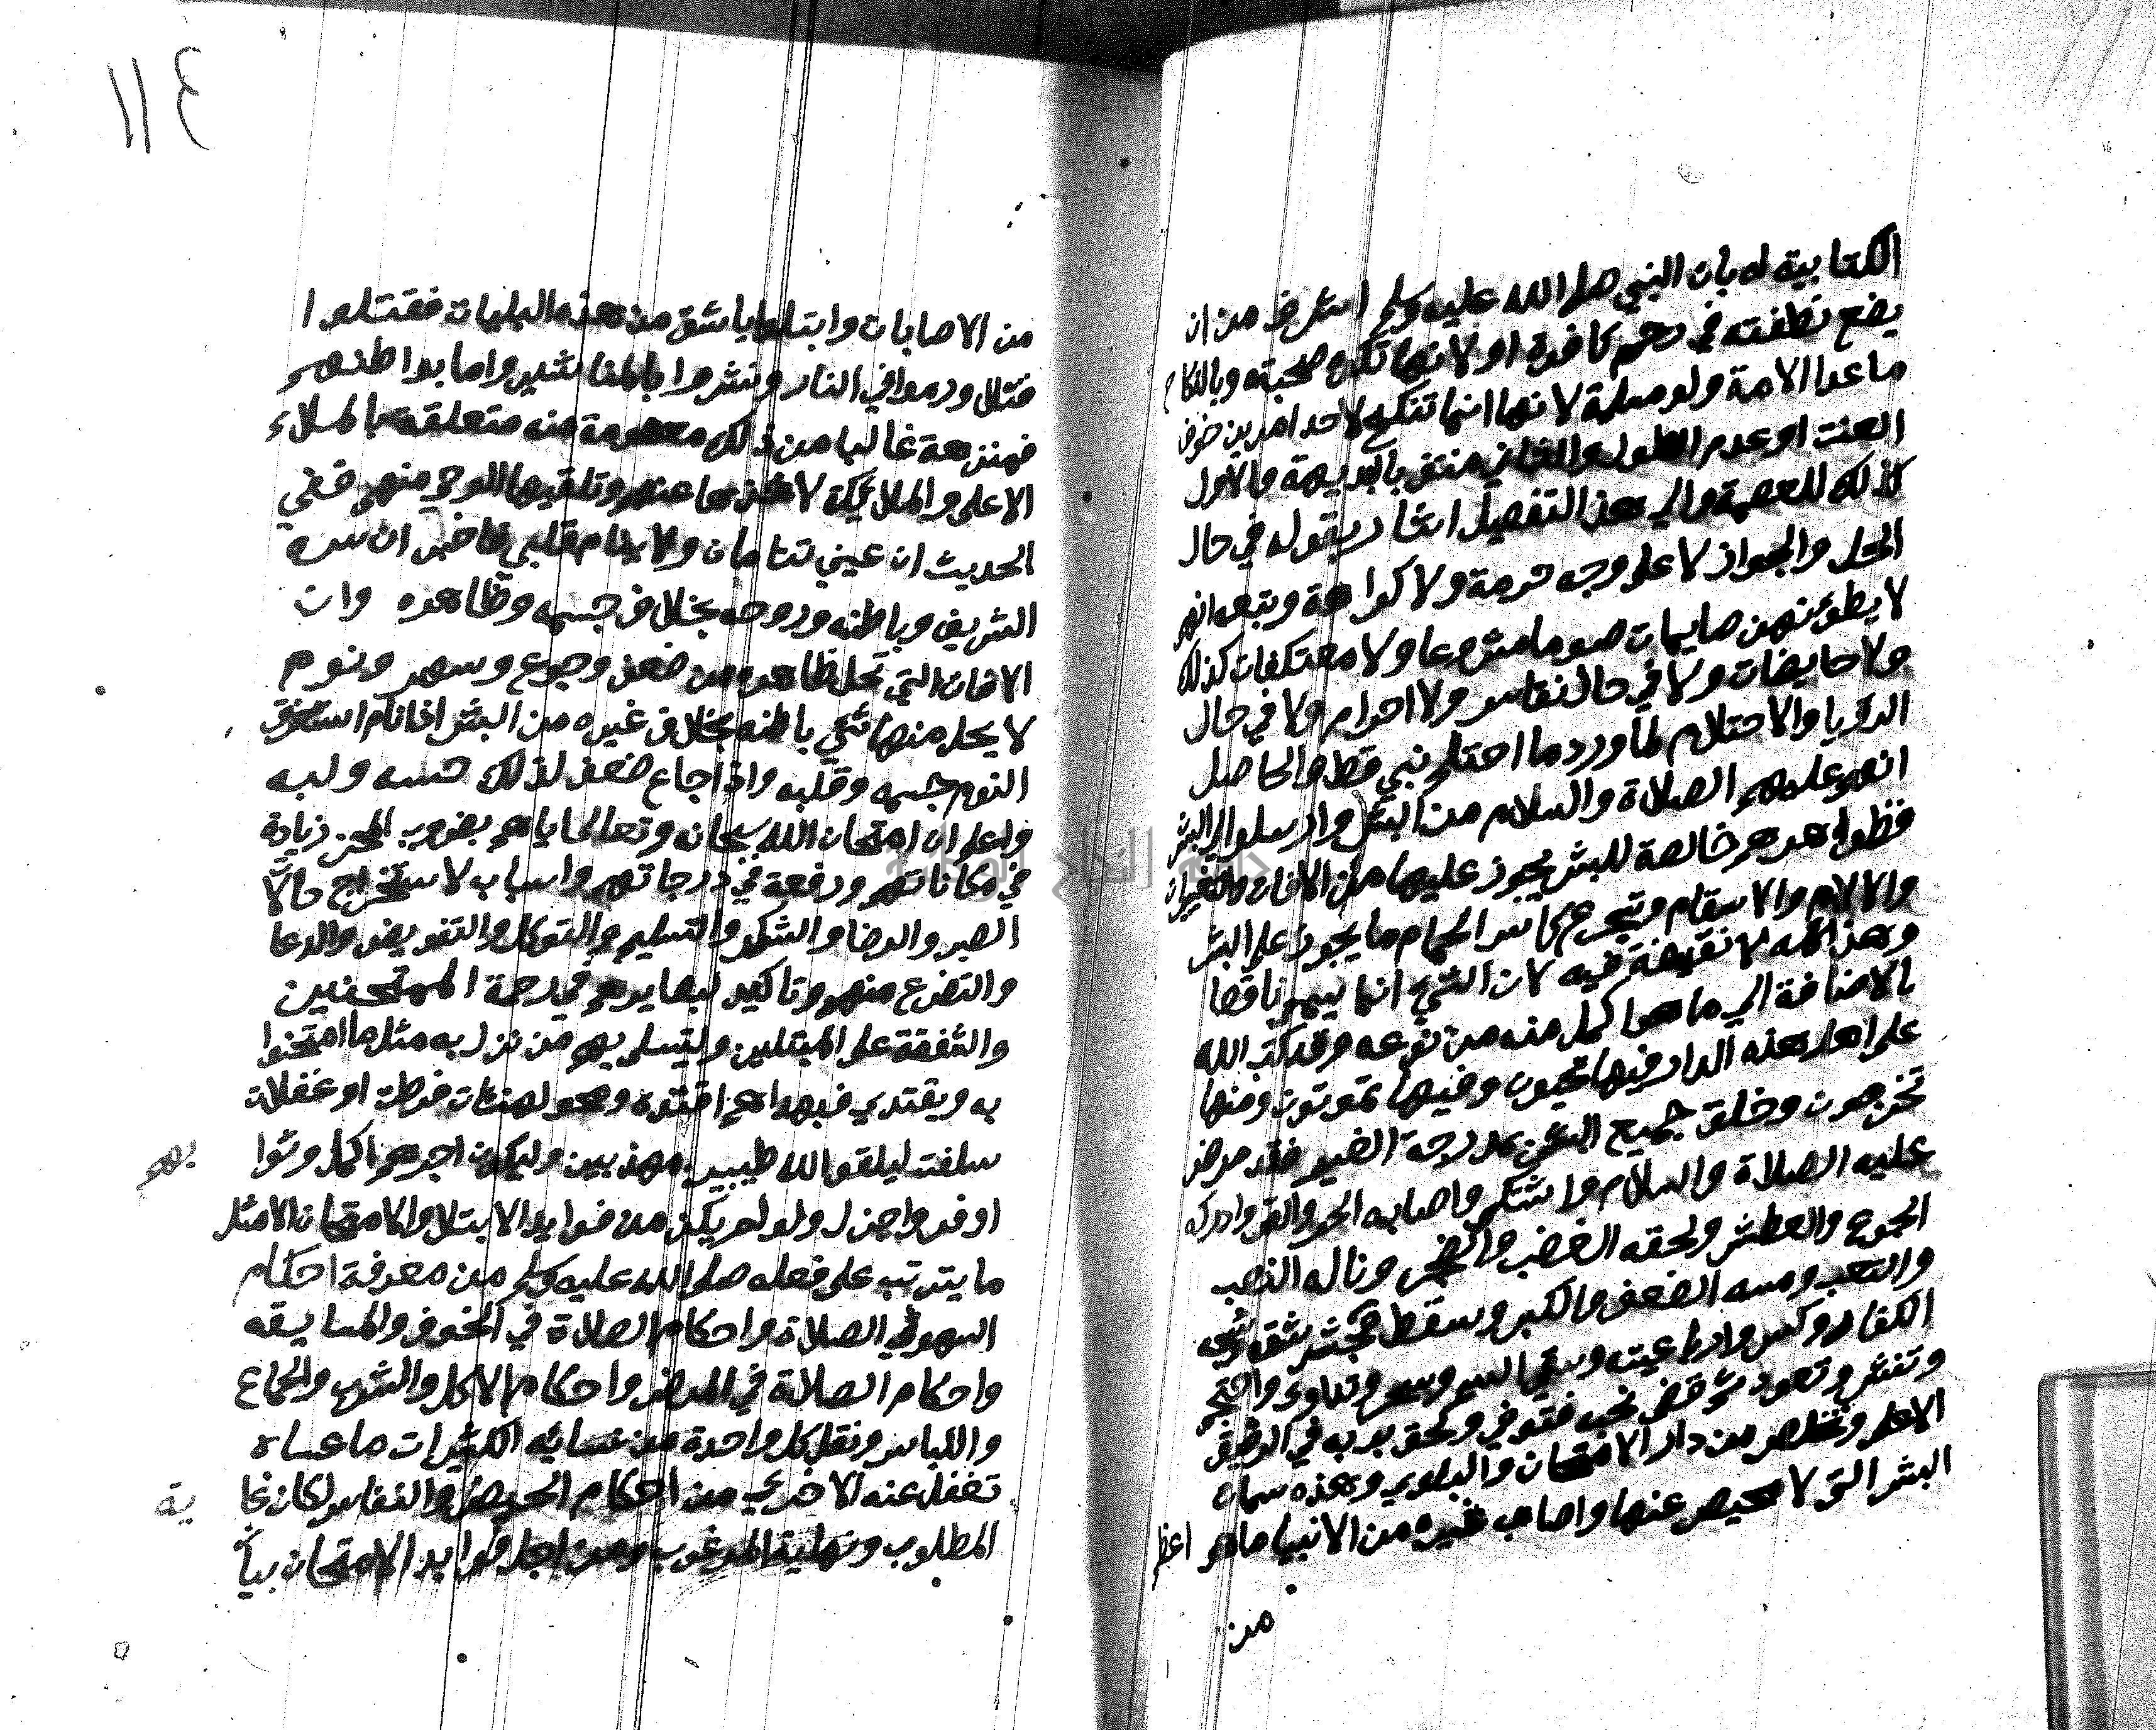 الكتابية له بان النبي صلى الله عليه وسلم اشرف من ان
يضع نطفته في رحم كافرة او لانها تكره صحبته وبالنكاح
ماعدا الامة ولو مسلمة لانها انما تنكح لاحد امرين خوف
العنت او عدم الطول والثاني منتف بالبديهة والاول
كذلك للعصمة والي هذا التفصيل اشار بقوله في حال
الحل والجواز لا على وجه حرمة ولا كراهة ويتجه انهم
لا يطؤنهن صايمات صوما مشروعا ولا معتكفات كذلك
ولا حايضات ولا في حال نفاس ولا احرام ولا في حال
الرؤيا والاحتلام لما ورد ما احتلم نبي قط والحاصل
انهم عليهم الصلاة والسلام من البشر وارسلوا الي البشر
فظواهرهم خالصة للبشر يجوز عليها من الافات والتغيرات
والالام والاسقام وتجرع كاس الحمام ما يجوز على البشر
وهذا كله لا نقيصة فيه لان الشي انما يسمى ناقصا
بالاضافة الي ما هو اكمل منه من نوعه وقد كتب الله
على اهل هذه الدار فيها تحيون وفيها تموتون ومنها
تخرجون وخلق جميع البشر بمدرجة الغير فقد مرض
عليه الصلاة والسلام واشتكى واصابه الحر والقر وادركه
الجوع والعطش ولحقه الغضب والضجر وناله النصب
والتعب ومسه الضعف والكبر وسقط فجحش شقه وشجه
الكفار وكسروا رباعيته وسقي السم وسحر وتداوى واحتجم
وتنشر وتعوذ ثم قضى نحبه فتوفي ولحق بربه في الرفيق
الاعلى وتخلص من دار الامتحان والبلوي وهذه سمات
البشر التي لا محيص عنها واصاب غيره من الانبيا ما هو اعظم
من
311
من الاصابات وابتلوا باشق من هذه البليات فقتلوا
قتلا ورموا في النار ونشروا بالمناشير واما بواطنهم
فمنزهة غالبا من ذلك معصومة منه متعلقة بالملاء
الاعلى والملائكة لاخذها عنهم وتلقيها الوحي منهم ففي
الحديث ان عيني تنامان ولا ينام قلبي فاخبر ان سره
الشريف وباطنه وروحه بخلاف جسمه وظاهره وان
الافات التي تحل ظاهره من ضعف وجوع وسهر ونوم
لا يحل منها شي باطنه بخلاف غيره من البشر اذا نام استغرق
النوم جسمه وقلبه واذا جاع ضعف لذلك حسه ولبه
واعلم ان امتحان الله سبحانه وتعالى اياهم بضروب المحن زيادة
في مكاناتهم ورفعة في درجاتهم واسباب لاستخراج حالا
الصبر والرضا والشكر والتسليم والتوكل والتفويض والدعا
والتضرع منهم وتاكيد لبصايرهم في رحمة الممتحنين
والشفقة على المبتلين وليتسلى بهم من نزل به مثل ما امتحنوا
به ويقتدي فبهداهم اقتده ومحو لهنات فرطت او غفلات
سلفت ليلقوا الله طيبين مهذبين وليكون اجرهم اكمل وثوا
بهم
اوفر واجزل ولو لم يكن من فوايد الابتلا والامتحان الامثل
ما يترتب على فعله صلى الله عليه وسلم من معرفة احكام
السهو في الصلاة واحكام الصلاة في الخوف والمسايفه
واحكام الصلاة في المرض واحكام الاكل والشرب والجماع
واللباس ونقل كل واحدة من نسائه الكثيرات ما عساه
تغفل عنه الاخرى من احكام الحيض والنفاس لكان غا
ية
المطلوب ونهاية المرغوب ومن اجل فوايد الامتحان بيا